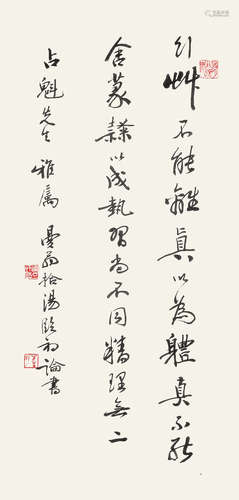 行艸不能離真以為體真不能
舍篆隸以成埶習尚不同精理無二
占魁先生雅屬 曼翁拾湯臨初論書